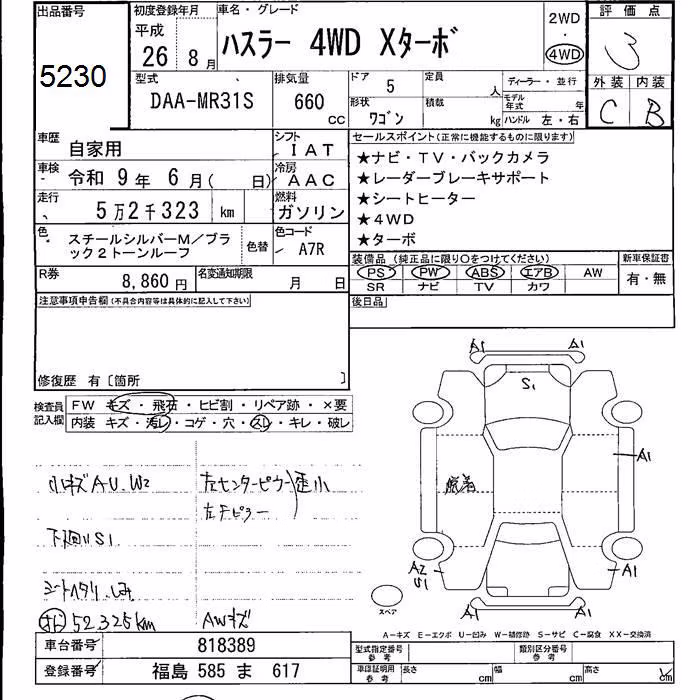 出品番号
5230
初度登録年月
平成
26 8 月
車名・グレード
ハスラー 4WD Xターボ
2WD
・
4WD
評価点
3
外装 内装
C B
型式
DAA-MR31S
排気量
660
CC
ドア 5
定員 人
形状
ワゴン
積載 kg
ディーラー・並行
モデル年式 年
ハンドル 左・右
車歴
自家用
シフト
IAT
車検
令和 9 年 6 月( 日)
冷房
AAC
走行
5 万 2 千 323 km
燃料
ガソリン
色
スチールシルバーM/ブラック2トーンルーフ
色替
色コード
A7R
R券
8,860 円
名変通知期限
月 日
セールスポイント(正常に機能するものに限ります)
★ナビ・TV・バックカメラ
★レーダーブレーキサポート
★シートヒーター
★4WD
★ターボ
装備品 (純正品に限り〇をつけてください)
新車保証書
PS PW ABS エアB AW
有・無
SR ナビ TV カワ
後日品
注意事項申告欄(不具合内容等は具体的に記入して下さい)
修復歴 有〔箇所 〕
検査員記入欄
FW キズ・飛石・ヒビ割・リペア跡・×要
内装 キズ・汚レ・コゲ・穴・スレ・キレ・破レ
小キズAU.W2
左センターピラー歪小
左Fピラー
下廻りS1
シートヘタリ.しみ
52,325km
AWキズ
A1 A1
S1
A1
A2
S1
A1
A1 A1
スペア
A-キズ E-エクボ U-凹み W-補修跡 S-サビ C-腐食 XX-交換済
車台番号
818389
登録番号
福島 585 ま 617
型式指定番号
参考
類別区分番号
参考
車庫証明用
参考
長さ cm
幅 cm
高さ cm